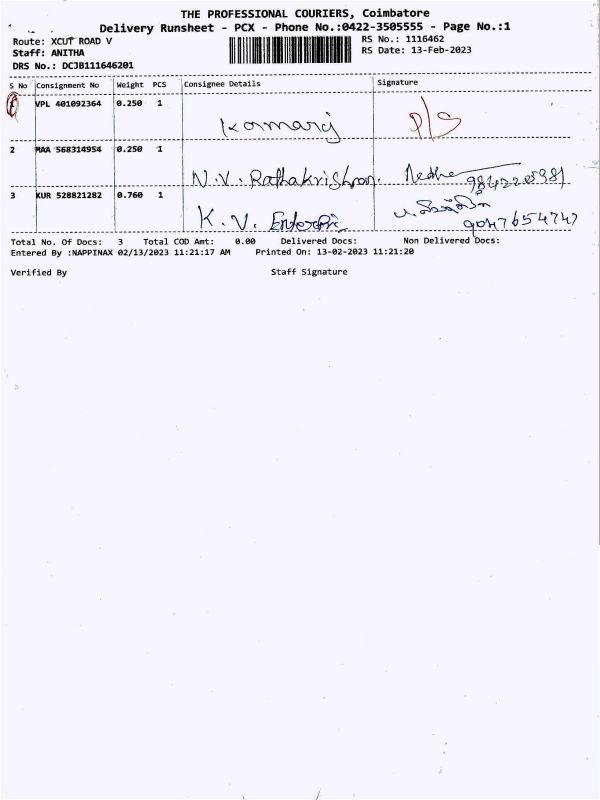 THE PROFESSIONAL COURIERS, Coimbatore
Delivery Runsheet - PCX - Phone No.:0422-3505555 - Page No.:1
Route: XCUT ROAD V
RS No.: 1116462
Staff: ANITHA
RS Date: 13-Feb-2023
DRS No.: DCJB111646201
S No Consignment No Weight PCS Consignee Details Signature
1 VPL 401092364 0.250 1 Kamaraj P/S
2 MAA 568314954 0.250 1 N.V. Rathakrishnan.
3 KUR 528821282 0.760 1 K.V. 9047654747
Total No. Of Docs: 3 Total COD Amt: 0.00 Delivered Docs: Non Delivered Docs:
Entered By :NAPPINAX 02/13/2023 11:21:17 AM Printed On: 13-02-2023 11:21:20
Verified By Staff Signature